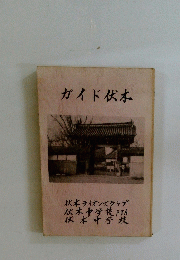 ガイド伏木
伏木ライオンズクラブ
伏木中学校PTA
伏木中学校